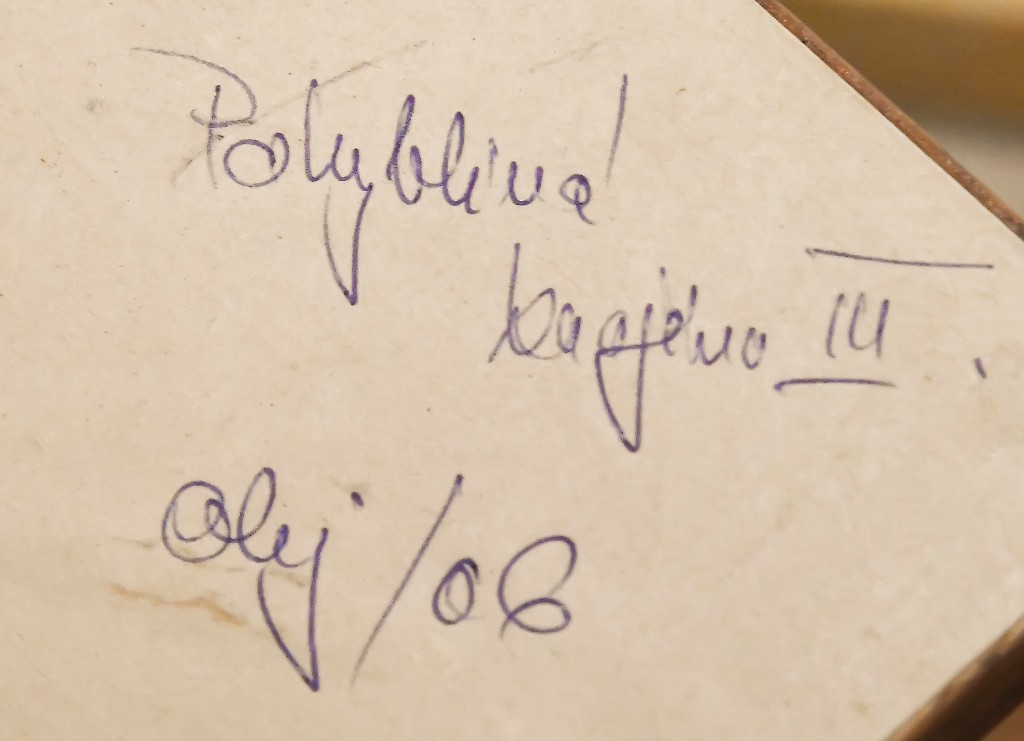 Pohyblivá
krajina III.
olej / 06